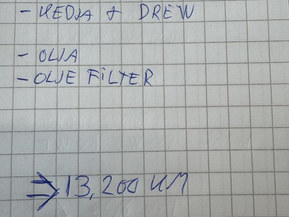 - KEDJA + DREW
- OLJA
- OLJE FILTER
⇒ 13,200 KM